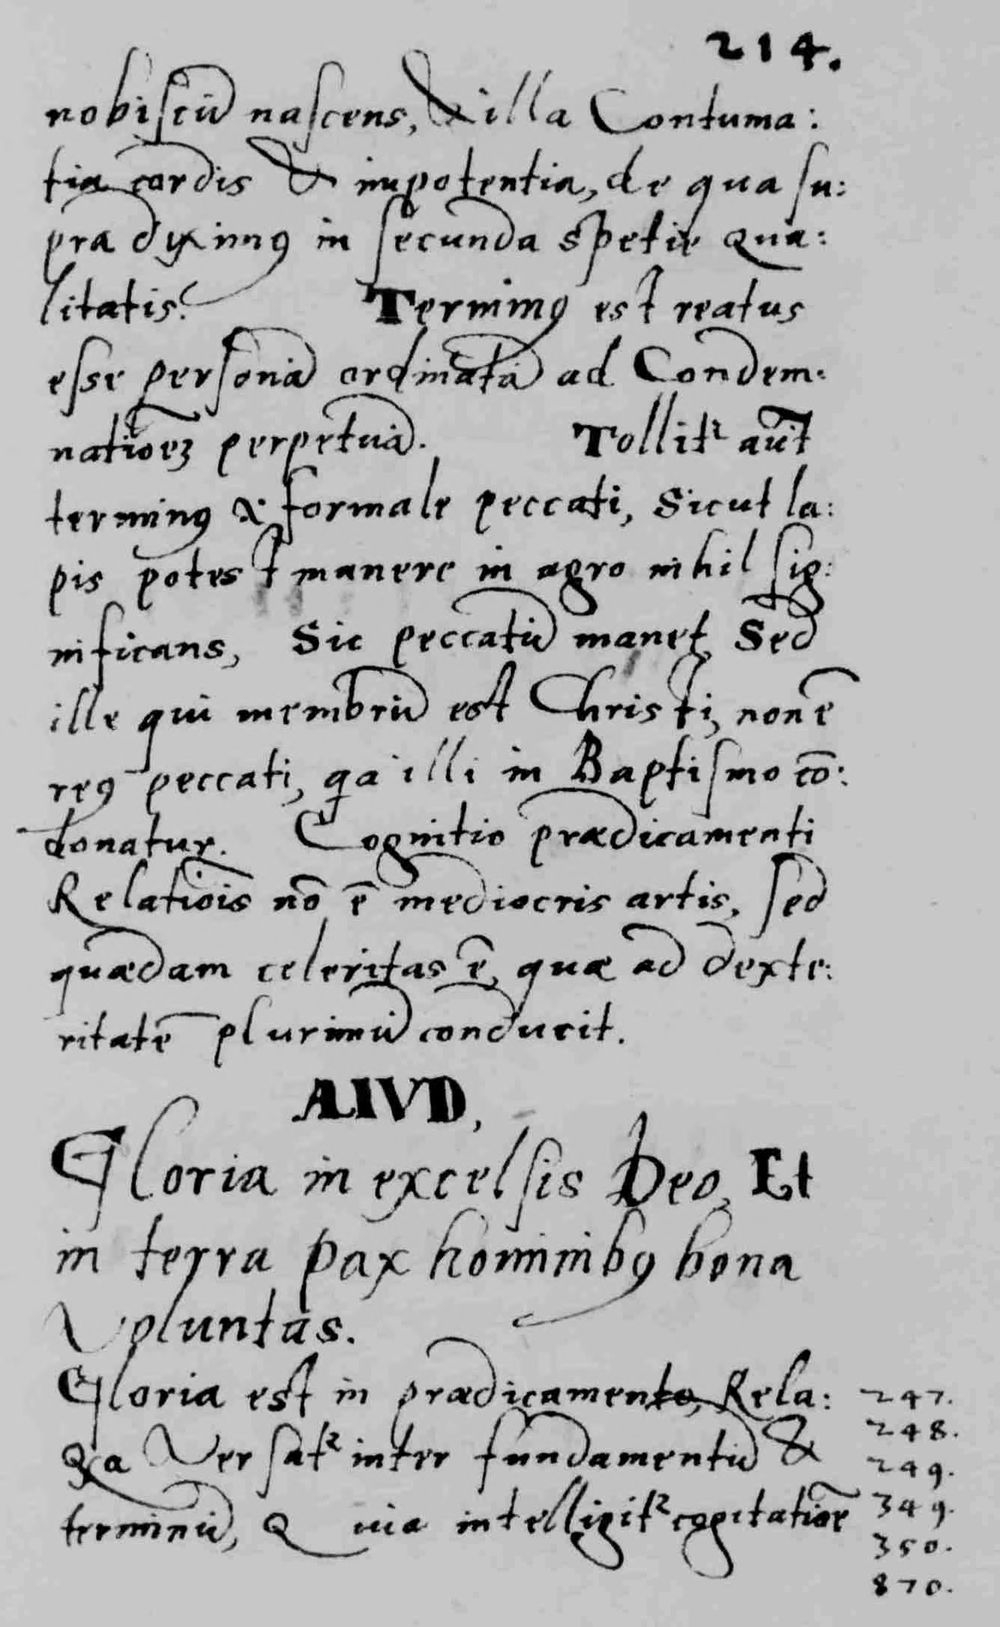 214.
nobiscū nascens, & illa Contuma:
tia cordis & impotentia, de qua su:
pra dyximꝰ in secunda spetie Qua:
litatis. Terminꝰ est reatus
esse personā ordinatā ad Condem:
natioēꝫ perpetuā. Tollitᷣ aūt
terminꝰ & formale peccati, Sicut la:
pis potest manere in agro nihil sig:
nificans, Sic peccatū manet, Sed
ille qui membrū est Christi, non ē
reꝰ peccati, qa illi in Baptismo cō:
donatur. Cognitio prædicamenti
Relatiōis nō ē mediocris artis, sed
quædam celeritas ē, quæ ad dexte:
ritatē plurimū conducit.
ALIVD,
Gloria in excelsis Deo, Et
in terra pax hominibꝰ bona
Voluntas.
Gloria est in prædicamento, Rela:
Qa Versatᷣ inter fundamentū &
terminū, Quia intelligitᷣ cogitatiōe
247.
248.
249.
349.
350.
870.